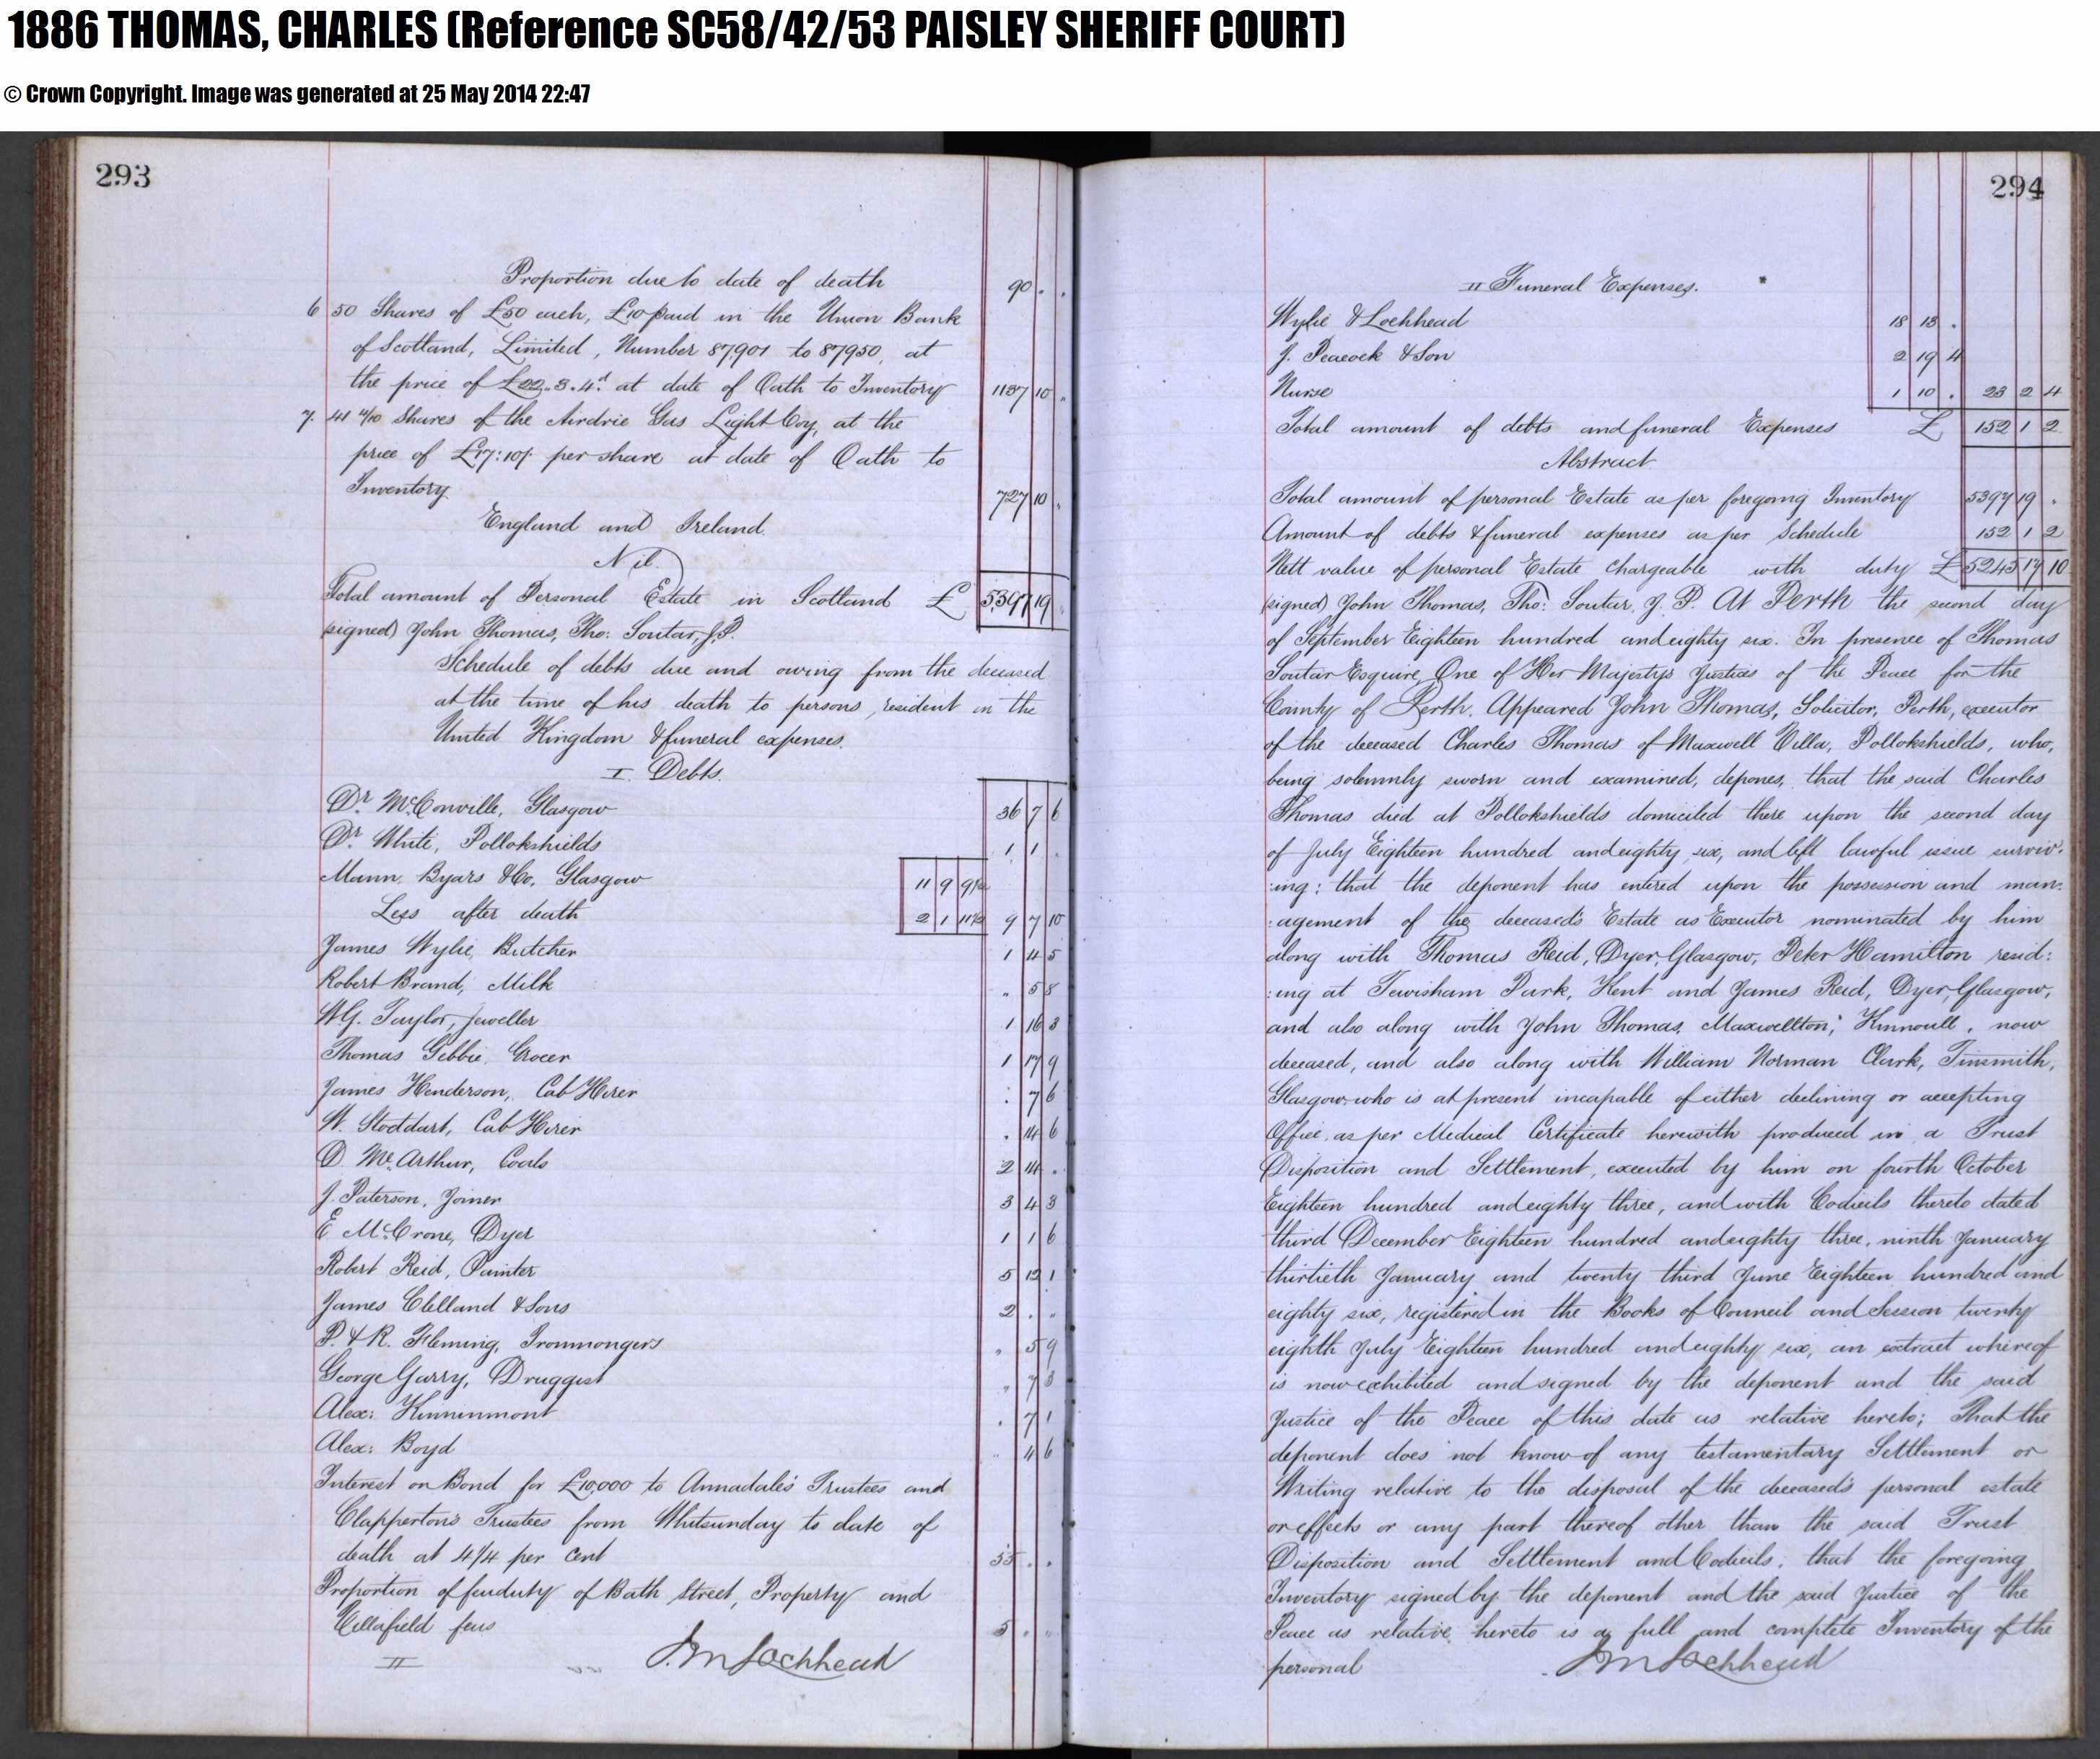 1886 THOMAS, CHARLES (Reference SC58/42/53 PAISLEY SHERIFF COURT)
© Crown Copyright. Image was generated at 25 May 2014 22:47
293
Proportion due to date of death 90 . .
6 50 Shares of £50 each, £10 paid in the Union Bank
of Scotland, Limited, Number 87,901 to 87950, at
the price of £22..3..4d at date of Oath to Inventory 1137 10 "
7. 41 4/10 Shares of the Airdrie Gas Light Coy, at the
price of £17:10/ per share at date of Oath to
Inventory 727 10 "
England and Ireland.
Nil.
Total amount of Personal Estate in Scotland £ 5397 19 "
(signed) John Thomas, Tho: Soutar, J.P.
Schedule of debts due and owing from the deceased
at the time of his death to persons, resident in the
United Kingdom & funeral expenses.
I. Debts.
Dr. McConville, Glasgow 36 7 6
Dr. White, Pollokshields 1 1 .
Mann, Byars & Co, Glasgow 11 9 9½
Less after death 2 1 11½ 9 7 10
James Wylie, Butcher 1 4 5
Robert Brand, Milk " 5 8
W.G. Taylor, Jeweller 1 16 3
Thomas Gebbie, Grocer 1 17 9
James Henderson, Cab Hirer : 7 6
W. Stoddart, Cab Hirer . 14 6
D. McArthur, Coals 2 14 .
J. Paterson, Joiner 3 4 3
E McCrone, Dyer 1 1 6
Robert Reid, Painter 5 12 1
James Clelland & Sons 2 . "
P. & R. Fleming, Ironmongers " 5 9
George Garry, Druggist " 7 3
Alex: Kinninmont . 7 1
Alex: Boyd " 4 6
Interest on Bond for £10,000 to Annadale's Trustees and
Clapperton's Trustees from Whitsunday to date of
death at 4¼ per cent 55 . .
Proportion of feuduty of Bath Street, Property and
feus 5 . "
II J M Lochhead
294
II Funeral Expenses.
Wylie & Lochhead 18 13 .
J. Peacock & Son 2 19 4
Nurse 1 10 . 23 2 4
Total amount of debts and funeral Expenses £ 152 1 2
Abstract
Total amount of personal Estate as per foregoing Inventory 5397 19 .
Amount of debts & funeral expenses as per Schedule 152 1 2
Nett value of personal Estate chargeable with duty £ 5245 17 10
(signed) John Thomas, Tho: Soutar, J. P. At Perth the second day
of September Eighteen hundred and eighty six. In presence of Thomas
Soutar Esquire, One of Her Majesty's Justices of the Peace for the
County of Perth. Appeared John Thomas, Solicitor, Perth, executor
of the deceased Charles Thomas of Maxwell Villa, Pollokshields, who,
being solemnly sworn and examined, depones, that the said Charles
Thomas died at Pollokshields domiciled there upon the second day
of July Eighteen hundred and eighty six, and left lawful issue surviv:
:ing: that the deponent has entered upon the possession and man:
:agement of the deceased's Estate as Executor nominated by him
along with Thomas Reid, Dyer, Glasgow, Peter Hamilton resid:
:ing at Lewisham Park, Kent and James Reid, Dyer, Glasgow,
and also along with John Thomas, Maxwellton, Kinnoull, now
deceased, and also along with William Norman Clark, Tinsmith,
Glasgow, who is at present incapable of either declining or accepting
Office, as per Medical Certificate herewith produced in a Trust
Disposition and Settlement, executed by him on fourth October
Eighteen hundred and eighty three, and with Codicils thereto dated
third December Eighteen hundred and eighty three, ninth January
thirtieth January and twenty third June Eighteen hundred and
eighty six, registered in the Books of Council and Session twenty
eighth July Eighteen hundred and eighty six, an extract whereof
is now exhibited and signed by the deponent and the said
Justice of the Peace of this date as relative hereto; That the
deponent does not know of any testamentary Settlement or
Writing relative to the disposal of the deceased's personal estate
or effects or any part thereof other than the said Trust
Disposition and Settlement and Codicils; that the foregoing
Inventory signed by the deponent and the said Justice of the
Peace as relative hereto is a full and complete Inventory of the
personal J M Lochhead